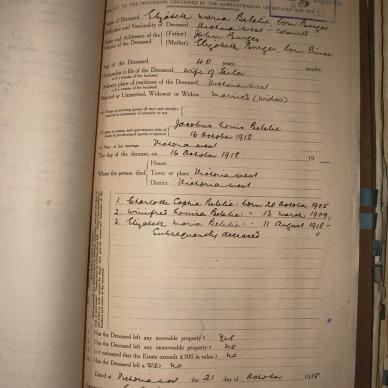 TO THE PROVISIONS CONTAINED IN THE ADMINISTRATION OF ESTATES ACT
Name of Deceased, Elizabeth Maria Beletie, born Burger
Birthplace and Nationality of Deceased Victoria west - coloured
Names and Addresses of the (Father) John Burger
Parents of the Deceased (Mother) Elizabeth Burger, born
Age of the Deceased 40 years months
Occupation in life of the Deceased wife of Tailor
Ordinary place of residence of the Deceased Victoria west
Married or Unmarried, Widower or Widow married (widow)
Name of surviving spouse (if any) and whether
married in community of property or not
Name or names, and approximate date of
death of pre-deceased spouse or spouses
Jacobus Louis Beletie
16 October 1918
Place of last marriage
Victoria west
The day of the decease, on 16 October 1918 19
Where the person died
House
Town or place Victoria west
District Victoria west
1. Charlotte Sophia Beletie: born 20 October 1905
2. Winnifred Louisa Beletie: " 13 March 1909,
3. Elizabeth Maria Beletie: " 11 August 1918 -
Subsequently deceased
Has the Deceased left any moveable property? Yes
Has the Deceased left any immoveable property? no
Is it estimated that the Estate exceeds £300 in value? no
Has the Deceased left a Will? no
Dated at Victoria west the 21 day of October 1918